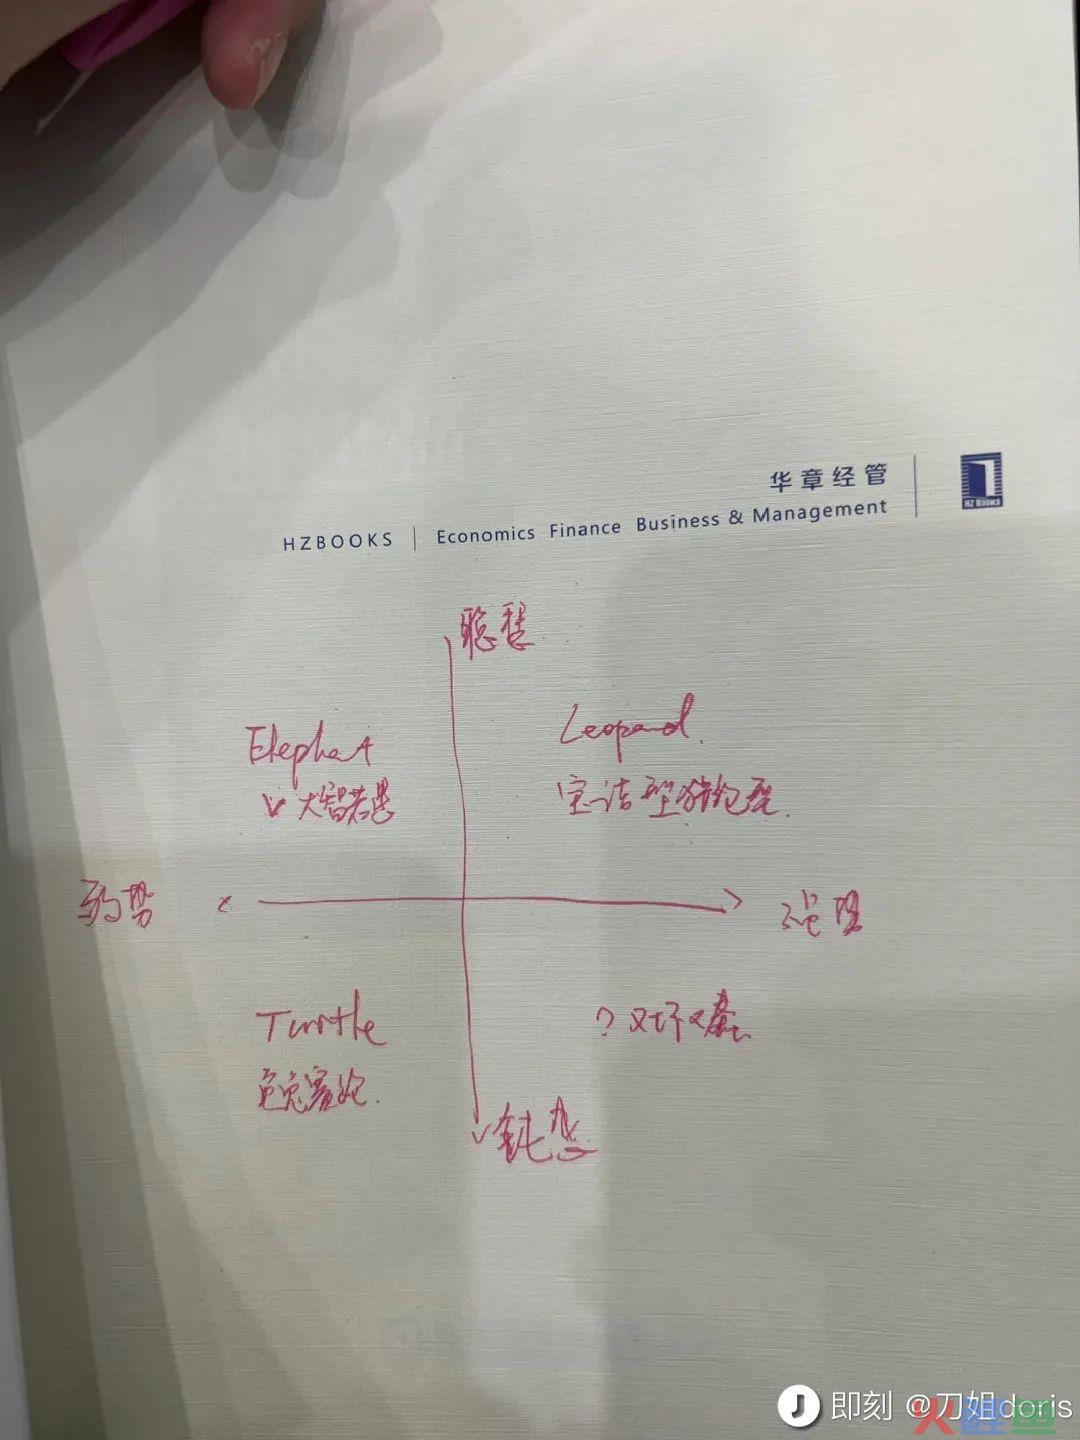 华章经管
HZBOOKS | Economics Finance Business & Management
HZ BOOKS
聪慧
Elephat
大智若愚
Leopard
宝洁型
弱势
强
Turtle
龟兔赛跑
? 又坏又蠢
钝感
即刻 @刀姐doris
火鲤鱼